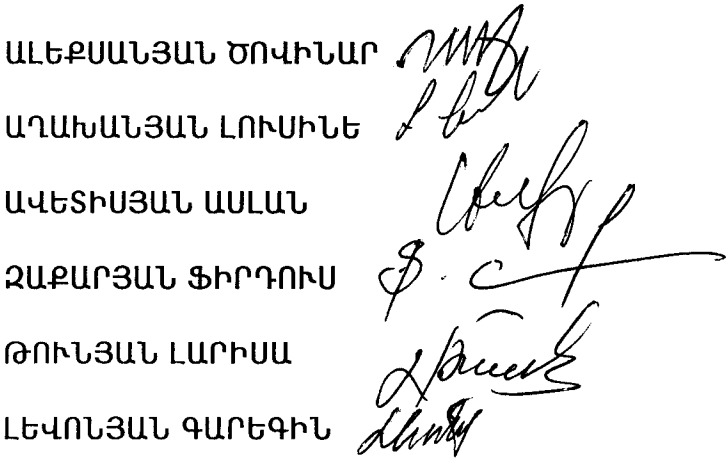 ԱԼԵՔՍԱՆՅԱՆ ԾՈՎԻՆԱՐ
ԱՂԱԽԱՆՅԱՆ ԼՈՒՍԻՆԵ
ԱՎԵՏԻՍՅԱՆ ԱՍԼԱՆ
ԶԱՔԱՐՅԱՆ ՖԻՐԴՈՒՍ
ԹՈՒՆՅԱՆ ԼԱՐԻՍԱ
ԼԵՎՈՆՅԱՆ ԳԱՐԵԳԻՆ